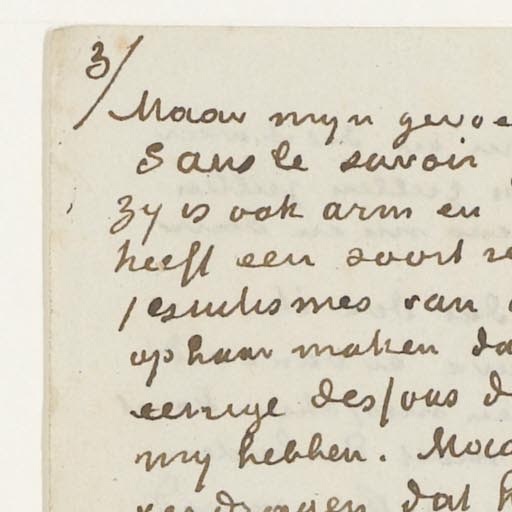 3/
Maar myn gevoe
Sans le savoir
zy is ook arm en
heeft een soort re
jesuitismes van
op haar maken da
eenige des/ous d
my hebben. Maa
verdringen dat h